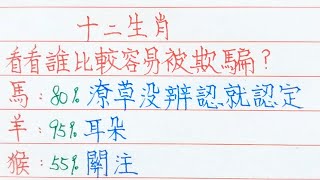 十二生肖
看看誰比較容易被欺騙？
馬：80% 潦草没辨認就認定
羊：95% 耳朵
猴：55% 關注